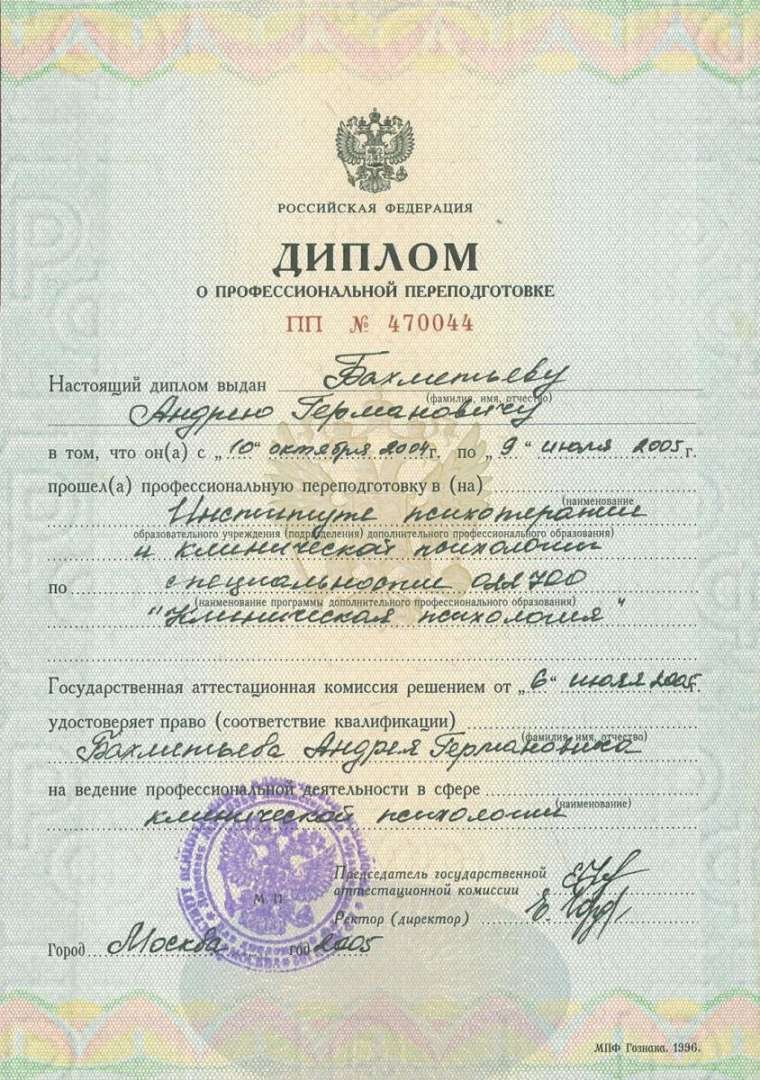 РОССИЙСКАЯ ФЕДЕРАЦИЯ
ДИПЛОМ
О ПРОФЕССИОНАЛЬНОЙ ПЕРЕПОДГОТОВКЕ
ПП № 470044
Настоящий диплом выдан Бахметьеву
(фамилия, имя, отчество)
Андрею Германовичу
в том, что он(а) с „10“ октября 2004г. по „9“ июля 2005г.
прошел(а) профессиональную переподготовку в (на)
(наименование
Институте психотерапии
образовательного учреждения (подразделения) дополнительного профессионального образования)
и клинической психологии
по специальности 022700
(наименование программы дополнительного профессионального образования)
"Клиническая психология"
Государственная аттестационная комиссия решением от „6“ июля 2005
удостоверяет право (соответствие квалификации)
(фамилия, имя, отчество)
Бахметьева Андрея Германовича
на ведение профессиональной деятельности в сфере
(наименование)
клинической психологии
Председатель государственной
аттестационной комиссии
М П
Ректор (директор)
Город Москва год 2005
МПФ Гознака. 1996.